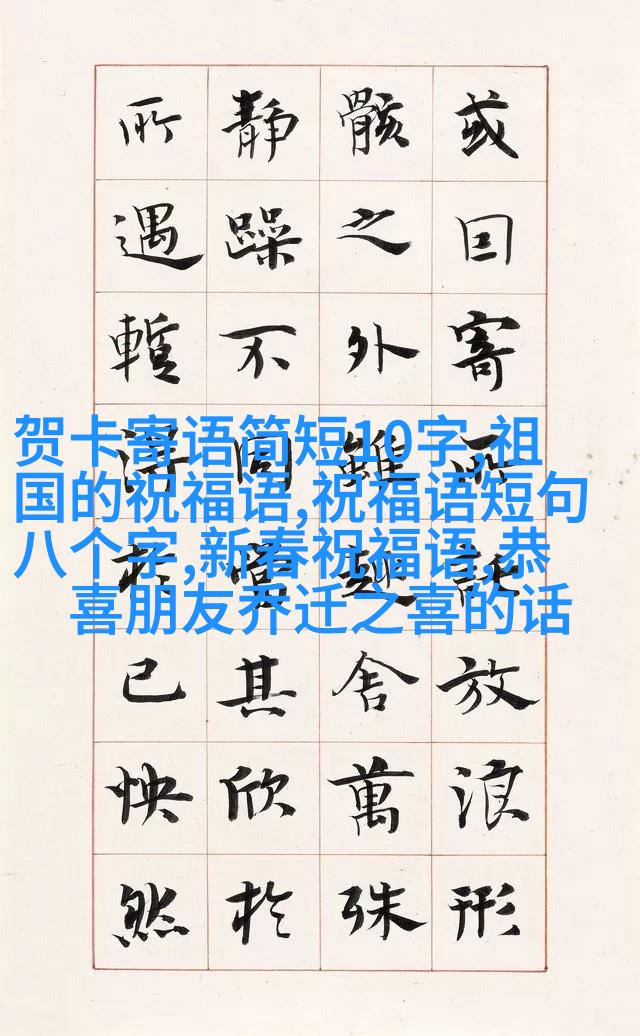 或因寄所託放浪形
骸之外雖趣舍萬殊
靜躁不同當其欣於
所遇暫得於己怏然
贺卡寄语简短10字,祖
国的祝福语,祝福语短句
八个字,新春祝福语,恭
喜朋友乔迁之喜的话